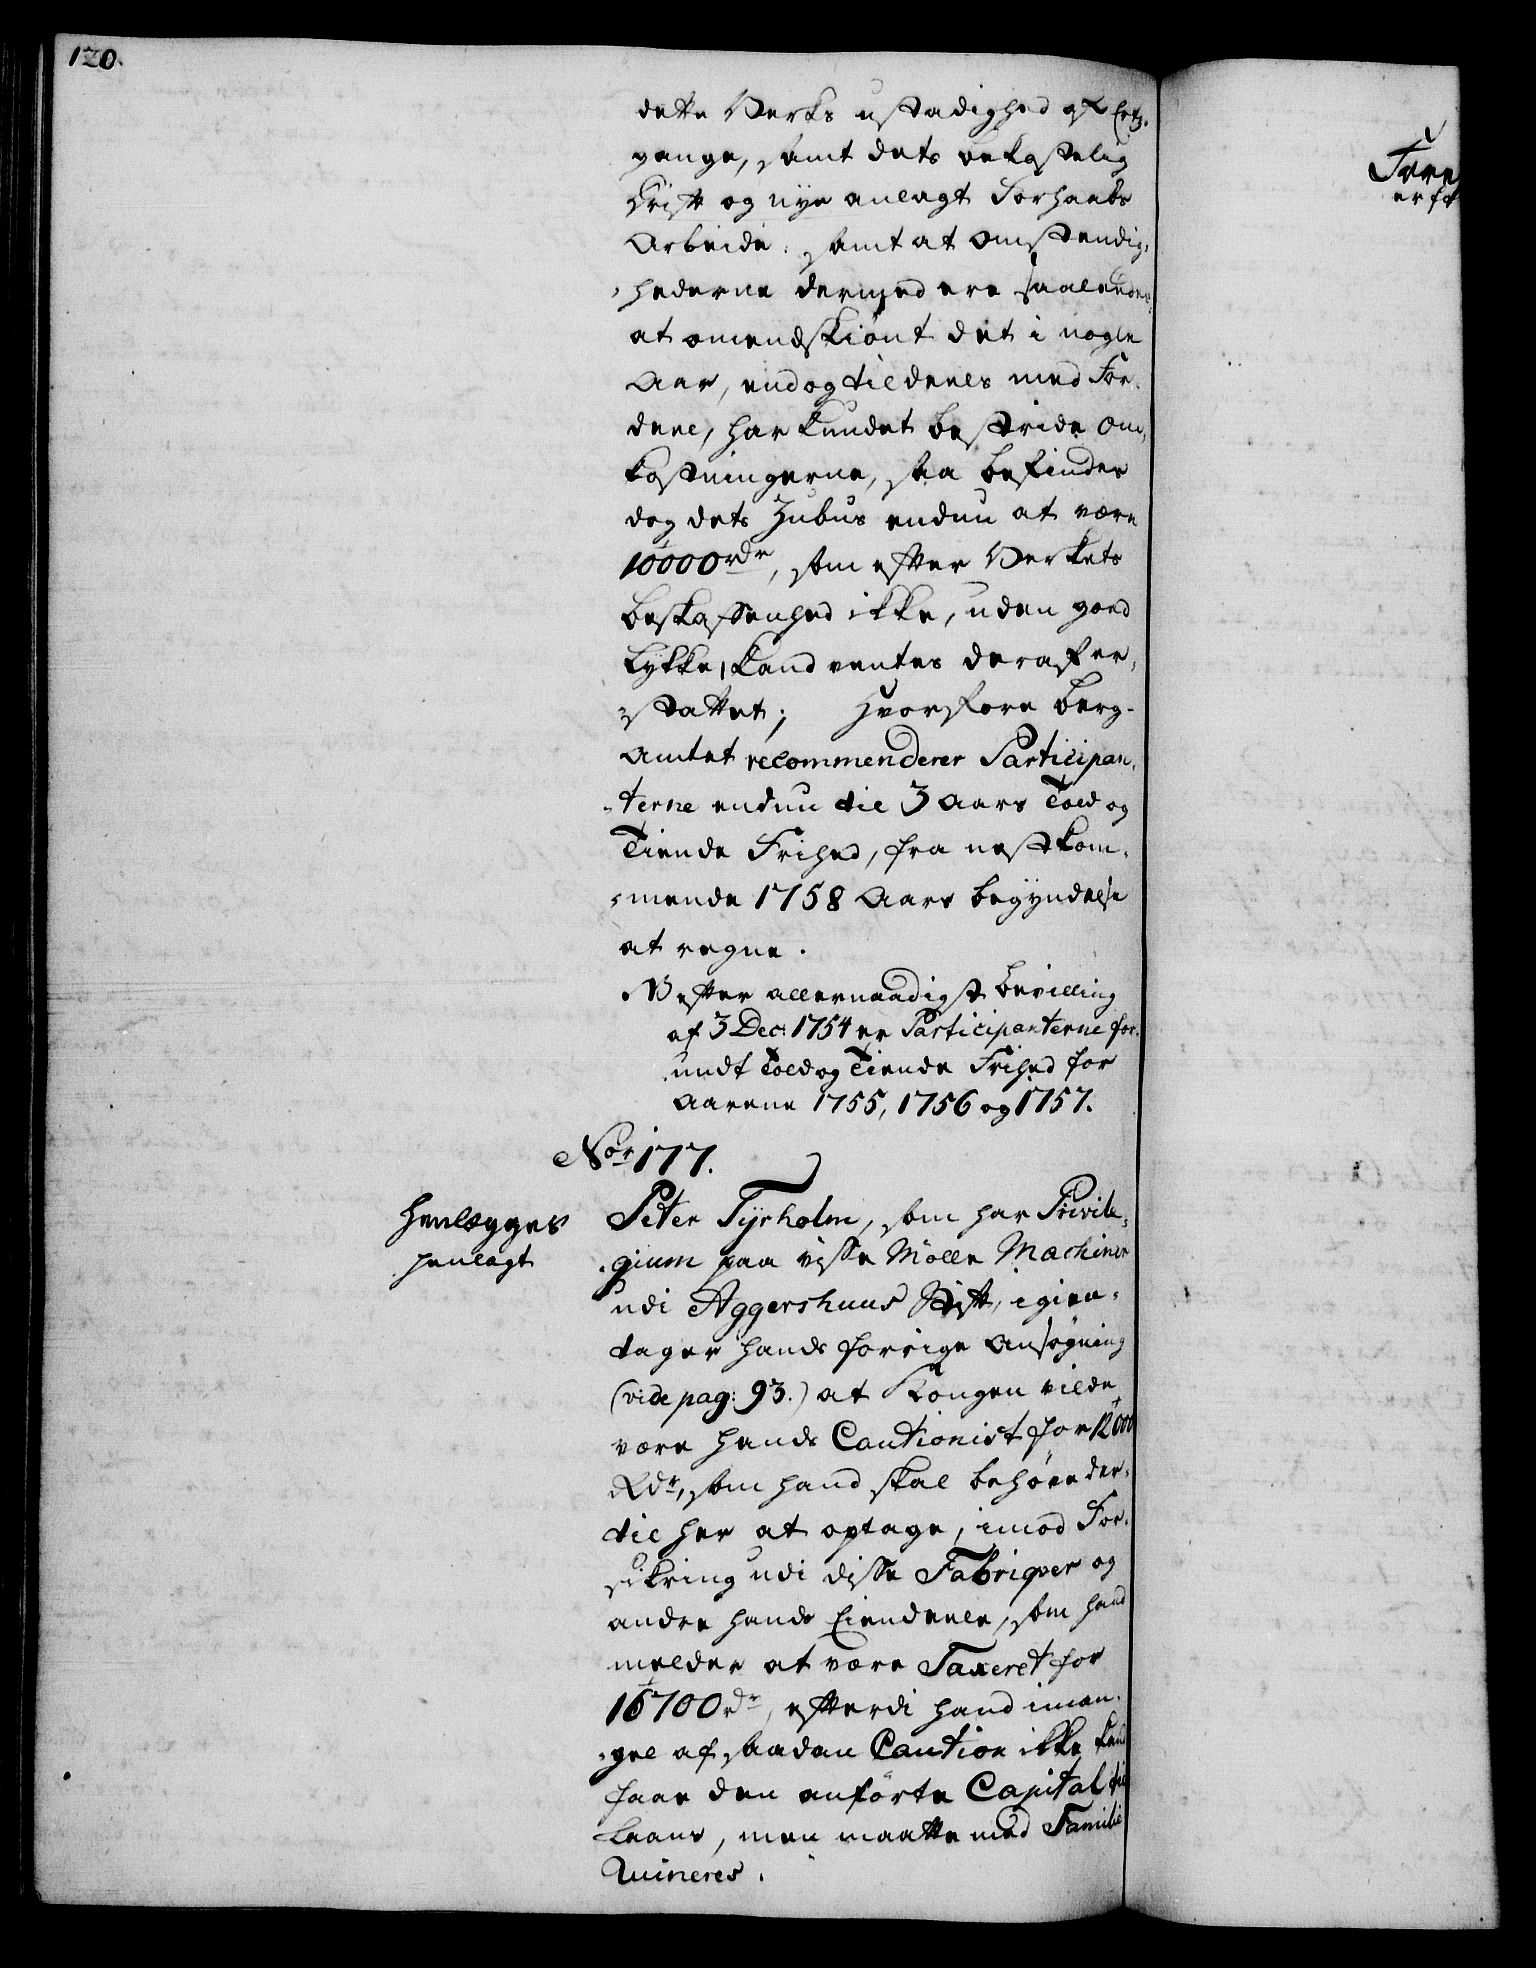 120.
dette Verks ustadighed af Ertz-
gange, samt dets bekostelig
Drift og nye anlagt Forhaabs
Arbeide, samt at Omstendig-
hederne dermed ere saaledes,
at omendskiønt det i nogle
Aar, endog tildeels med For-
deel, har kundet bestride Om-
kostningerne, saa befindes
dog dets Zubus endnu at være
10000 rdr, som efter Verkets
beskaffenhed ikke, uden goed
Lykke, kand ventes deraf er-
stattet; Hvorfore Berg-
Amtet recommenderer Participan-
terne endnu til 3 Aars Told og
Tiende Frihed, fra nestkom-
mende 1758 Aars begyndelse
at regne.
NB efter allernaadigst bevilling
af 3 Dec: 1754 er Participanterne for-
undt Told og Tiende Frihed for
Aarene 1755, 1756 og 1757.
Nor 177.
Henlægges
henlagt
Peter Tyrholm, som har Privile-
gium paa visse Mølle Machiner
udi Aggershuus Stift, igien-
tager hands forrige Ansøgning
(vide pag: 93.) at Kongen vilde
være hands Cautionist for 12000
Rdr, som hand skal behøve der-
til her at optage, imod For-
sikring udi disse Fabriqver og
andre hands Eiendeele, som hand
melder at være Taxeret for
16700 rdr, efterdi hand i man-
gel af saadan Caution ikke kand
faae den anførte Capital til
Laans, men maatte med Familie
Ruineres.